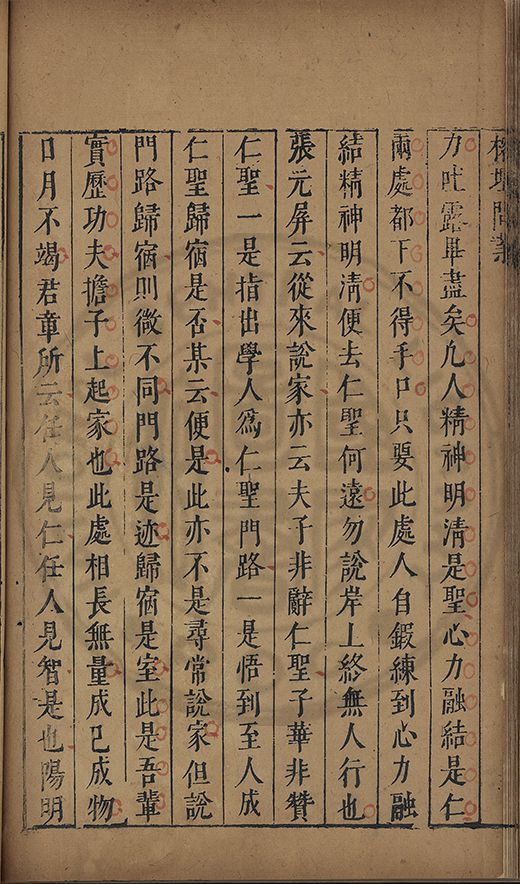 榕壇問業
力吐露畢盡矣凢人精神明清是聖心力融結是仁
兩處都下不得手口只要此處人自鍜練到心力融
結精神明清便去仁聖何遠勿說岸上終無人行也
張元屏云從來說家亦云夫子非辭仁聖子華非贊
仁聖一是指出學人爲仁聖門路一是悟到至人成
仁聖歸宿是否某云便是此亦不是尋常說家但說
門路歸宿則微不同門路是迹歸宿是室此是吾輩
實歷功夫擔子上起家也此處相長無量成已成物
日月不竭君章所云任人見仁任人見智是也陽明